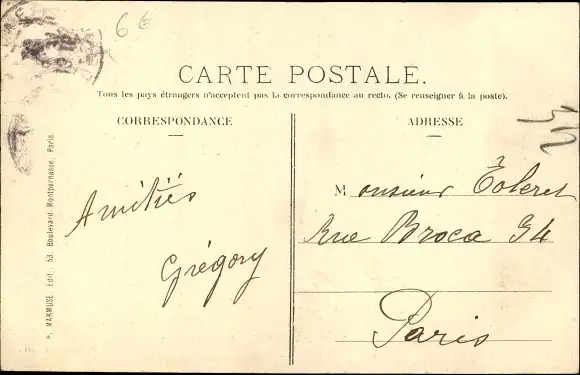 6 €
CARTE POSTALE.
Tous les pays étrangers n'acceptent pas la correspondance au recto. (Se renseigner à la poste).
CORRESPONDANCE
ADRESSE
Amitiés
Grégory
Monsieur
Rue Broca 34
Paris
MARMUSE, Edit., 53, Boulevard Montparnasse, Paris